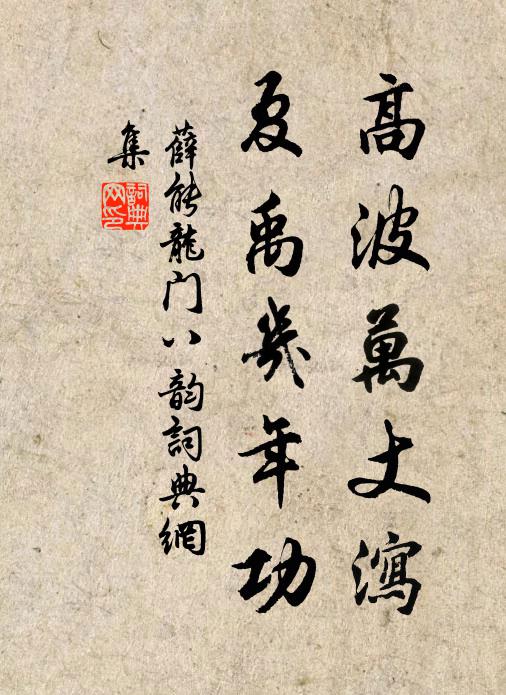 高波萬丈瀉
夏禹幾年功
薛能龍门八韵詞典網
集
詞典
网印